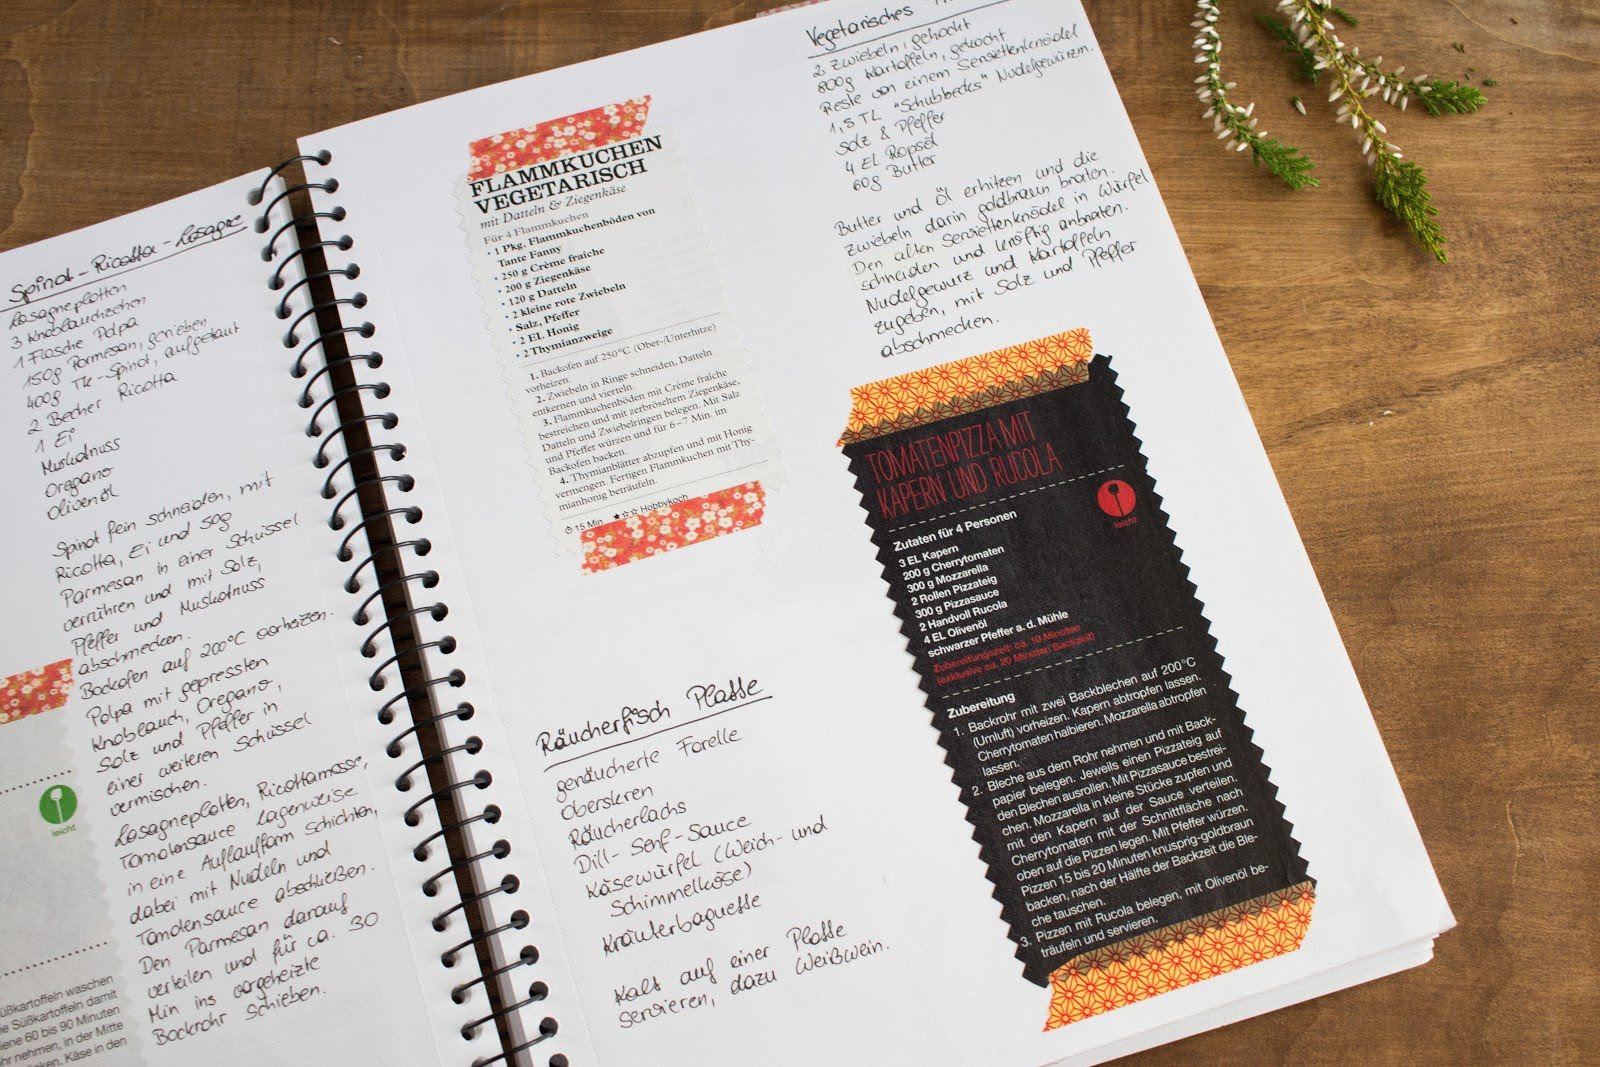 Spinat-Ricotta-Lasagne
Lasagneplatten
3 Knoblauchzehen
1 Flasche Polpa
150g Parmesan, gerieben
400g TK-Spinat, aufgetaut
2 Becher Ricotta
1 Ei
Muskatnuss
Oregano
Olivenöl
Spinat fein schneiden, mit
Ricotta, Ei und 50g
Parmesan in einer Schüssel
verrühren und mit Salz,
Pfeffer und Muskatnuss
abschmecken.
Backofen auf 200°C vorheizen.
Polpa mit gepressten
Knoblauch, Oregano,
Salz und Pfeffer in
einer weiteren Schüssel
vermischen.
Lasagneplatten, Ricottamasse,
Tomatensauce lagenweise
in eine Auflaufform schichten,
dabei mit Nudeln und
Tomatensauce abschließen.
Den Parmesan darauf
verteilen und für ca. 30
Min ins vorgeheizte
Backrohr schieben.
leicht
üßkartoffeln waschen
ie Süßkartoffeln damit
iene 60 bis 90 Minuten
hr nehmen, in der Mitte
cken. Käse in den
FLAMMKUCHEN
VEGETARISCH
mit Datteln & Ziegenkäse
Für 4 Flammkuchen
• 1 Pkg. Flammkuchenböden von
Tante Fanny
• 250 g Crème fraiche
• 200 g Ziegenkäse
• 120 g Datteln
• 2 kleine rote Zwiebeln
• Salz, Pfeffer
• 2 EL Honig
• 2 Thymianzweige
1. Backofen auf 250°C (Ober-/Unterhitze)
vorheizen.
2. Zwiebeln in Ringe schneiden, Datteln
entkernen und vierteln.
3. Flammkuchenböden mit Crème fraîche
bestreichen und mit zerbröseltem Ziegenkäse,
Datteln und Zwiebelringen belegen. Mit Salz
und Pfeffer würzen und für 6–7 Min. im
Backofen backen.
4. Thymianblätter abzupfen und mit Honig
vermengen. Fertigen Flammkuchen mit Thy-
mianhonig beträufeln.
15 Min ★☆☆ Hobbykoch
Räucherfisch Platte
geräucherte Forelle
Oberskren
Räucherlachs
Dill-Senf-Sauce
Käsewürfel (Weich- und
Schimmelkäse)
Kräuterbaguette
Kalt auf einer Platte
servieren, dazu Weißwein.
Vegetarisches
2 Zwiebeln, gehackt
800g Kartoffeln, gekocht
Reste von einem Serviettenknödel
1,5 TL "Schuhbecks" Nudelgewürzm.
Salz & Pfeffer
4 EL Rapsöl
60g Butter
Butter und Öl erhitzen und die
Zwiebeln darin goldbraun braten.
Den alten Serviettenknödel in Würfel
schneiden und knusprig anbraten.
Nudelgewürz und Kartoffeln
zugeben, mit Salz und Pfeffer
abschmecken.
TOMATENPIZZA MIT
KAPERN UND RUCOLA
leicht
Zutaten für 4 Personen
3 EL Kapern
200 g Cherrytomaten
300 g Mozzarella
2 Rollen Pizzateig
300 g Pizzasauce
2 Handvoll Rucola
4 EL Olivenöl
schwarzer Pfeffer a. d. Mühle
Zubereitungszeit: ca. 10 Minuten
(exklusive ca. 20 Minuten Backzeit)
Zubereitung
1. Backrohr mit zwei Backblechen auf 200°C
(Umluft) vorheizen. Kapern abtropfen lassen.
Cherrytomaten halbieren. Mozzarella abtropfen
lassen.
2. Bleche aus dem Rohr nehmen und mit Back-
papier belegen. Jeweils einen Pizzateig auf
den Blechen ausrollen. Mit Pizzasauce bestrei-
chen. Mozzarella in kleine Stücke zupfen und
mit den Kapern auf der Sauce verteilen.
Cherrytomaten mit der Schnittfläche nach
oben auf die Pizzen legen. Mit Pfeffer würzen.
Pizzen 15 bis 20 Minuten knusprig-goldbraun
backen, nach der Hälfte der Backzeit die Ble-
che tauschen.
3. Pizzen mit Rucola belegen, mit Olivenöl be-
träufeln und servieren.